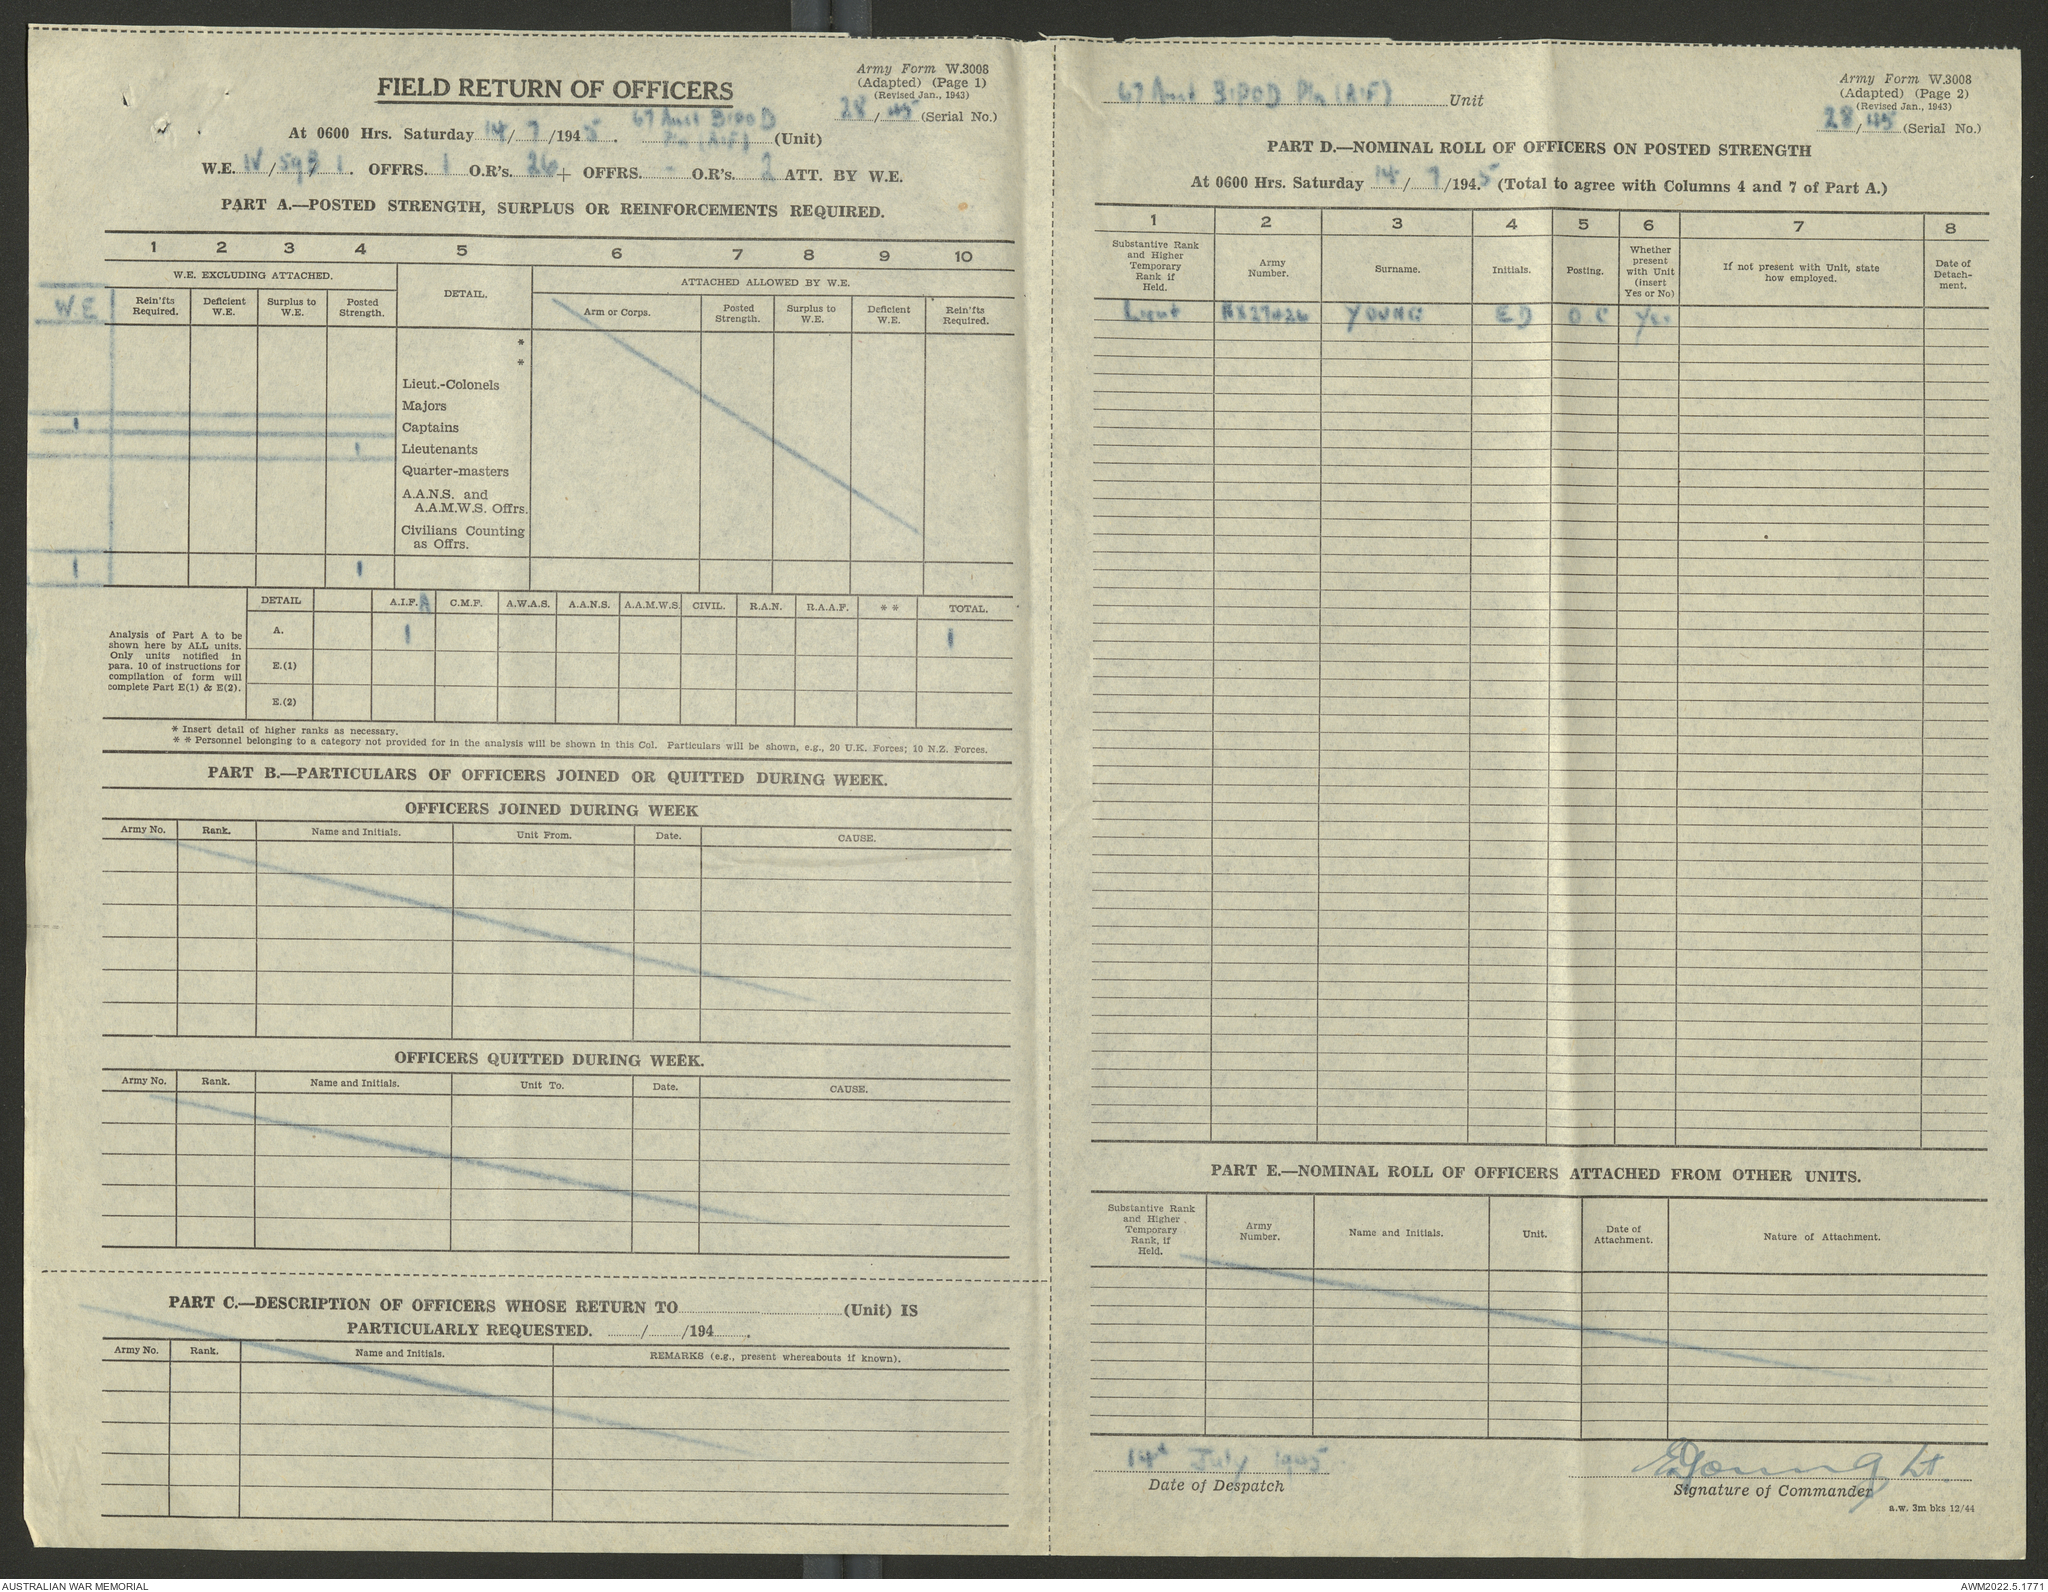 Army Form W.3008
(Adapted) (Page 1)
(Revised Jan., 1943)
FIELD RETURN OF OFFICERS
28/45 (Serial No.)
At 0600 Hrs. Saturday 14/7/1945. 67 Aust BIPOD Pln (AIF) (Unit)
W.E. IV/593/1. OFFRS. 1 O.R's. 26 + OFFRS. - O.R's. 2 ATT. BY W.E.
PART A.—POSTED STRENGTH, SURPLUS OR REINFORCEMENTS REQUIRED.
1 2 3 4 5 6 7 8 9 10
W.E. EXCLUDING ATTACHED. DETAIL. ATTACHED ALLOWED BY W.E.
W.E Rein'fts Required. Deficient W.E. Surplus to W.E. Posted Strength. Arm or Corps. Posted Strength. Surplus to W.E. Deficient W.E. Rein'fts Required.
*
*
Lieut.-Colonels
Majors
1 Captains
1 Lieutenants
Quarter-masters
A.A.N.S. and
A.A.M.W.S. Offrs.
Civilians Counting
as Offrs.
1 1
DETAIL A.I.F. A C.M.F. A.W.A.S. A.A.N.S. A.A.M.W.S. CIVIL. R.A.N. R.A.A.F. * * TOTAL.
Analysis of Part A to be
shown here by ALL units.
Only units notified in
para. 10 of instructions for
compilation of form will
complete Part E(1) & E(2).
A. 1 1
E.(1)
E.(2)
* Insert detail of higher ranks as necessary.
* * Personnel belonging to a category not provided for in the analysis will be shown in this Col. Particulars will be shown, e.g., 20 U.K. Forces; 10 N.Z. Forces.
PART B.—PARTICULARS OF OFFICERS JOINED OR QUITTED DURING WEEK.
OFFICERS JOINED DURING WEEK
Army No. Rank. Name and Initials. Unit From. Date. CAUSE.
OFFICERS QUITTED DURING WEEK.
Army No. Rank. Name and Initials. Unit To. Date. CAUSE.
PART C.—DESCRIPTION OF OFFICERS WHOSE RETURN TO (Unit) IS
PARTICULARLY REQUESTED. / /194 .
Army No. Rank. Name and Initials. REMARKS (e.g., present whereabouts if known).
67 Aust BIPOD Pln (AIF) Unit
Army Form W.3008
(Adapted) (Page 2)
(Revised Jan., 1943)
28/45 (Serial No.)
PART D.—NOMINAL ROLL OF OFFICERS ON POSTED STRENGTH
At 0600 Hrs. Saturday 14/7/1945 (Total to agree with Columns 4 and 7 of Part A.)
1 2 3 4 5 6 7 8
Substantive Rank and Higher Temporary Rank if Held. Army Number. Surname. Initials. Posting. Whether present with Unit (insert Yes or No) If not present with Unit, state how employed. Date of Detach-ment.
Lieut NX27426 YOUNG ED OC Yes
PART E.—NOMINAL ROLL OF OFFICERS ATTACHED FROM OTHER UNITS.
Substantive Rank and Higher Temporary Rank, if Held. Army Number. Name and Initials. Unit. Date of Attachment. Nature of Attachment.
14th July 1945 EDYoung Lt.
Date of Despatch Signature of Commander
a.w. 3m bks 12/44
AUSTRALIAN WAR MEMORIAL AWM2022.5.1771